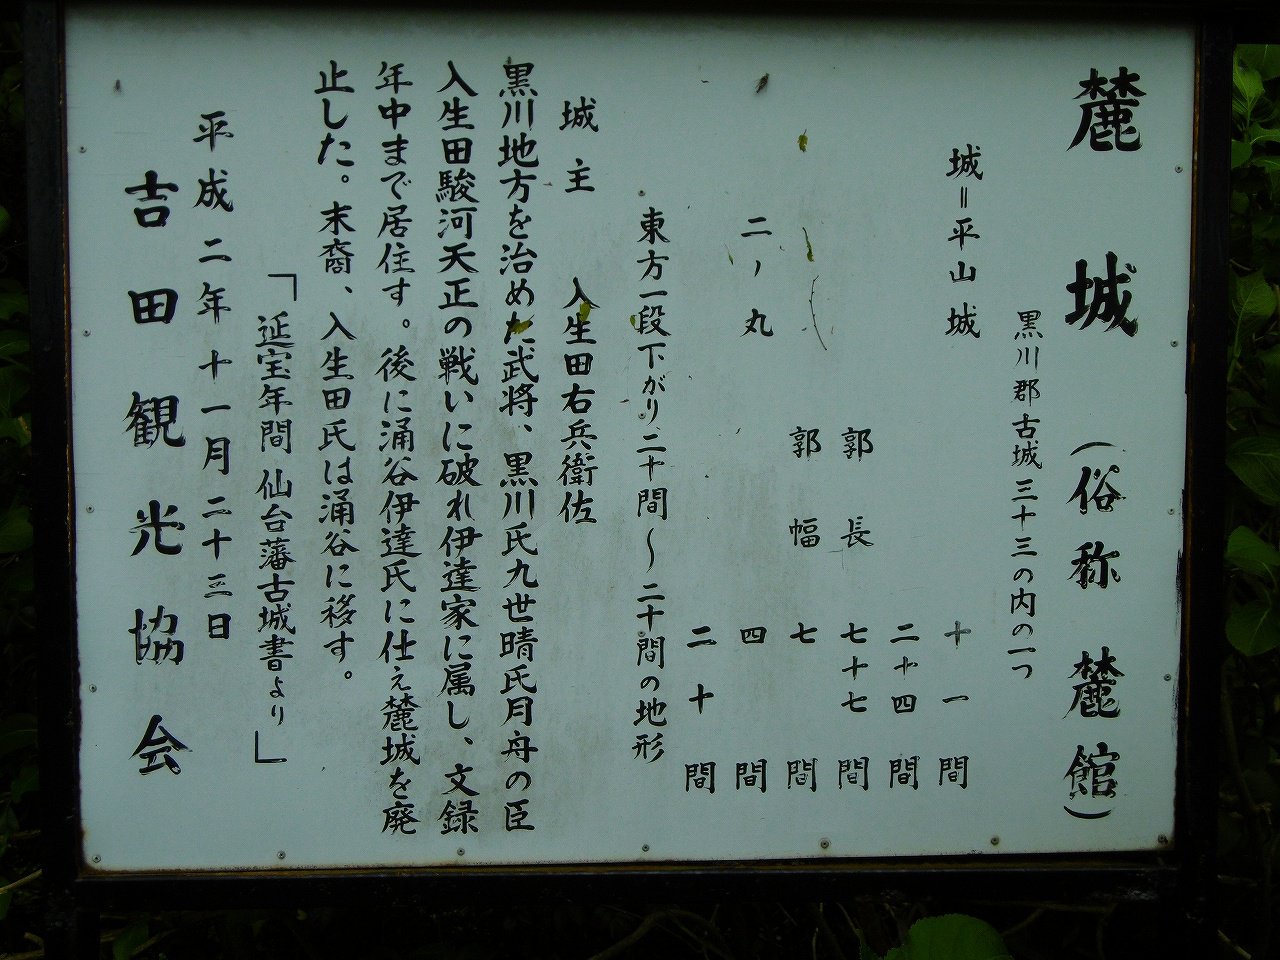 麓城（俗称麓館）
黒川郡古城三十三の内の一つ
城＝平山城 十一間
二十四間
郭長 七十七間
郭幅 七間
二ノ丸 四間
二十間
東方一段下がり二十間～二十間の地形
城主 入生田右兵衛佐
黒川地方を治めた武将、黒川氏九世晴氏月舟の臣
入生田駿河天正の戦いに破れ伊達家に属し、文録
年中まで居住す。後に涌谷伊達氏に仕え麓城を廃
止した。末裔、入生田氏は涌谷に移す。
「延宝年間仙台藩古城書より」
平成二年十一月二十三日
吉田観光協会